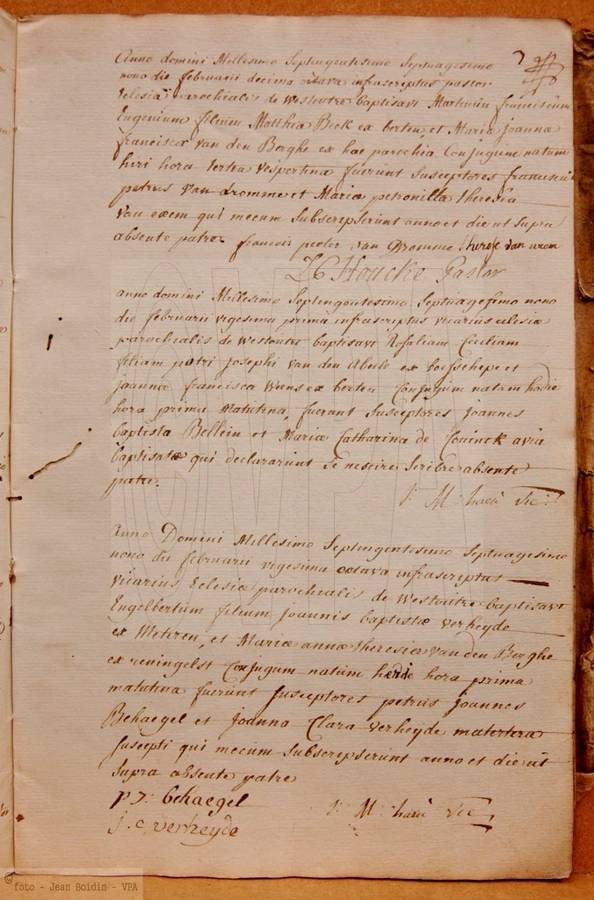 Anno domini Millesimo Septingentesimo Septuagesimo 7
nono die februarii decima octava infrascriptus pastor
Eclesiæ parochialis de Westoutre baptisavi Martinum franciscum
Eugenium filium Matthiæ Beck ex berten, et Mariæ Joanna
francisca van den Berghe ex hac parochia Conjugum natum
heri hora tertia vespertina fuerunt Susceptores franciscus
petrus Van dromme et Maria petronilla theresia
Van exem qui mecum Subscripserunt anno et die ut Supra
absente patre francois peeter van Dromme therese van
Houcke Pastor
anno domini Millesimo Septingentesimo Septuagesimo nono
die februarii vigesima prima infrascriptus vicarius eclesiæ
parochialis de Westoutre baptisavi Rosaliam Ceciliam
filiam petri Josephi van den Abeele ex et
joannæ francisca ex berten Conjugum natam hodie
hora prima Matutina, fuerunt Susceptores Joannes
baptista Bellein et Maria Catharina de Coninck avia
baptisatæ qui declararunt Se nescire Scribere absente
patre.
J: M: vic:
Anno Domini Millesimo Septingentesimo Septuagesimo
nono die februarii vigesima octava infrascriptus
vicarius Eclesiæ parochialis de Westoutre baptisavi
Engelbertum filium Joannis baptistæ verheyde
ex Meteren, et Mariæ annæ theresiæ van den Berghe
ex reningelst Conjugum natum hodie hora prima
matutina fuerunt Susceptores petrus Joannes
Behaegel et Joanna Clara verheyde matertera
Suscepti qui mecum Subscripserunt anno et die ut
Supra absente patre
p j: behaegel J: M: vic
j. c. verheyde
© foto - Jean Boidin - VPA